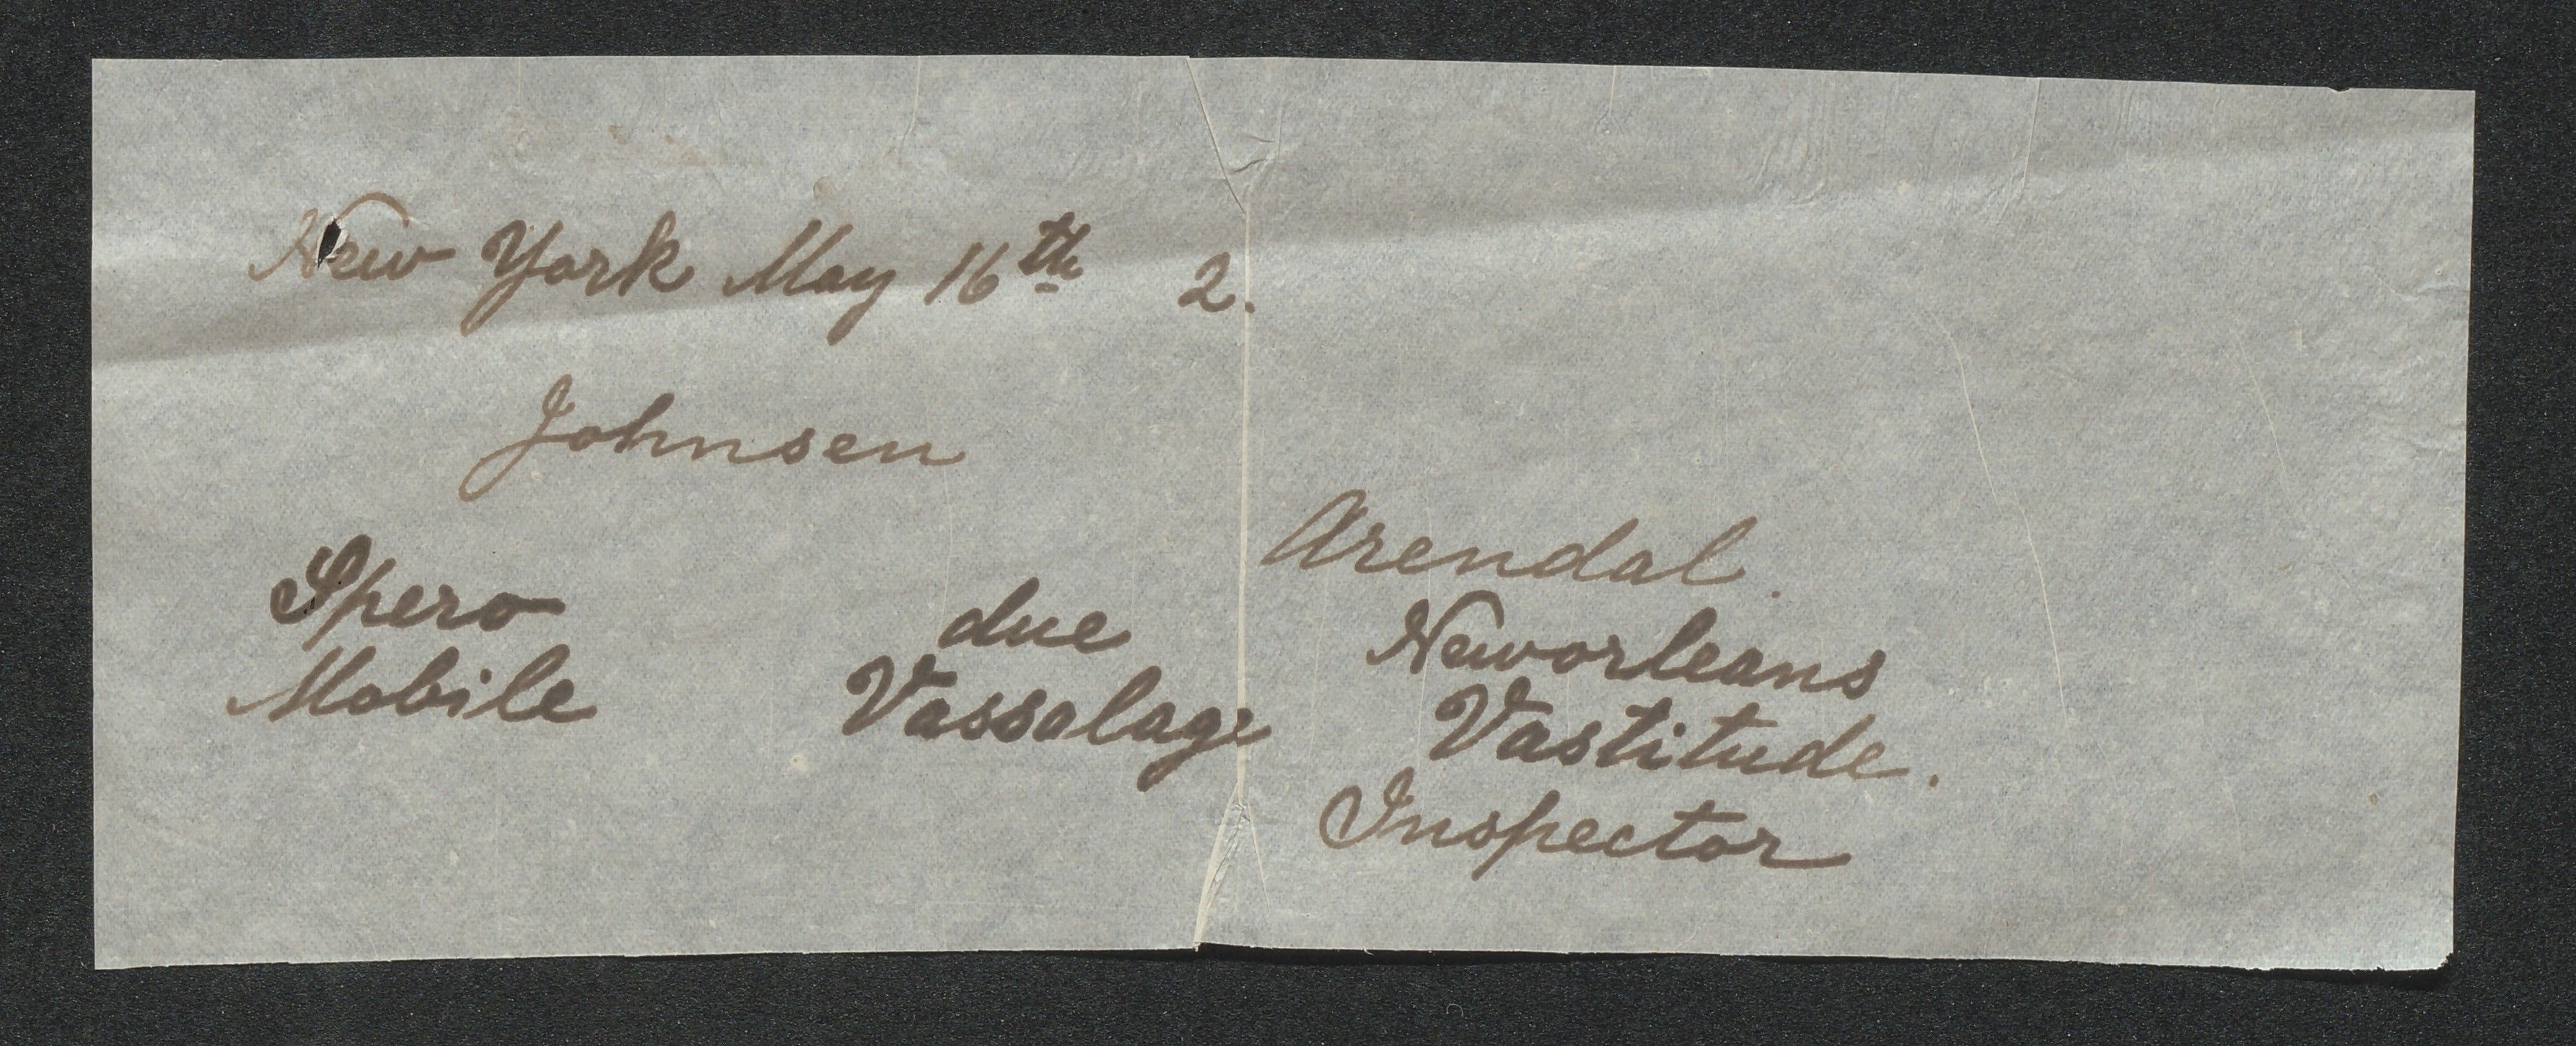 New York May 16th 2.
Johnsen
Arendal.
Spero due Neworleans
Mobile Vassalage Vastitude.
Inspector